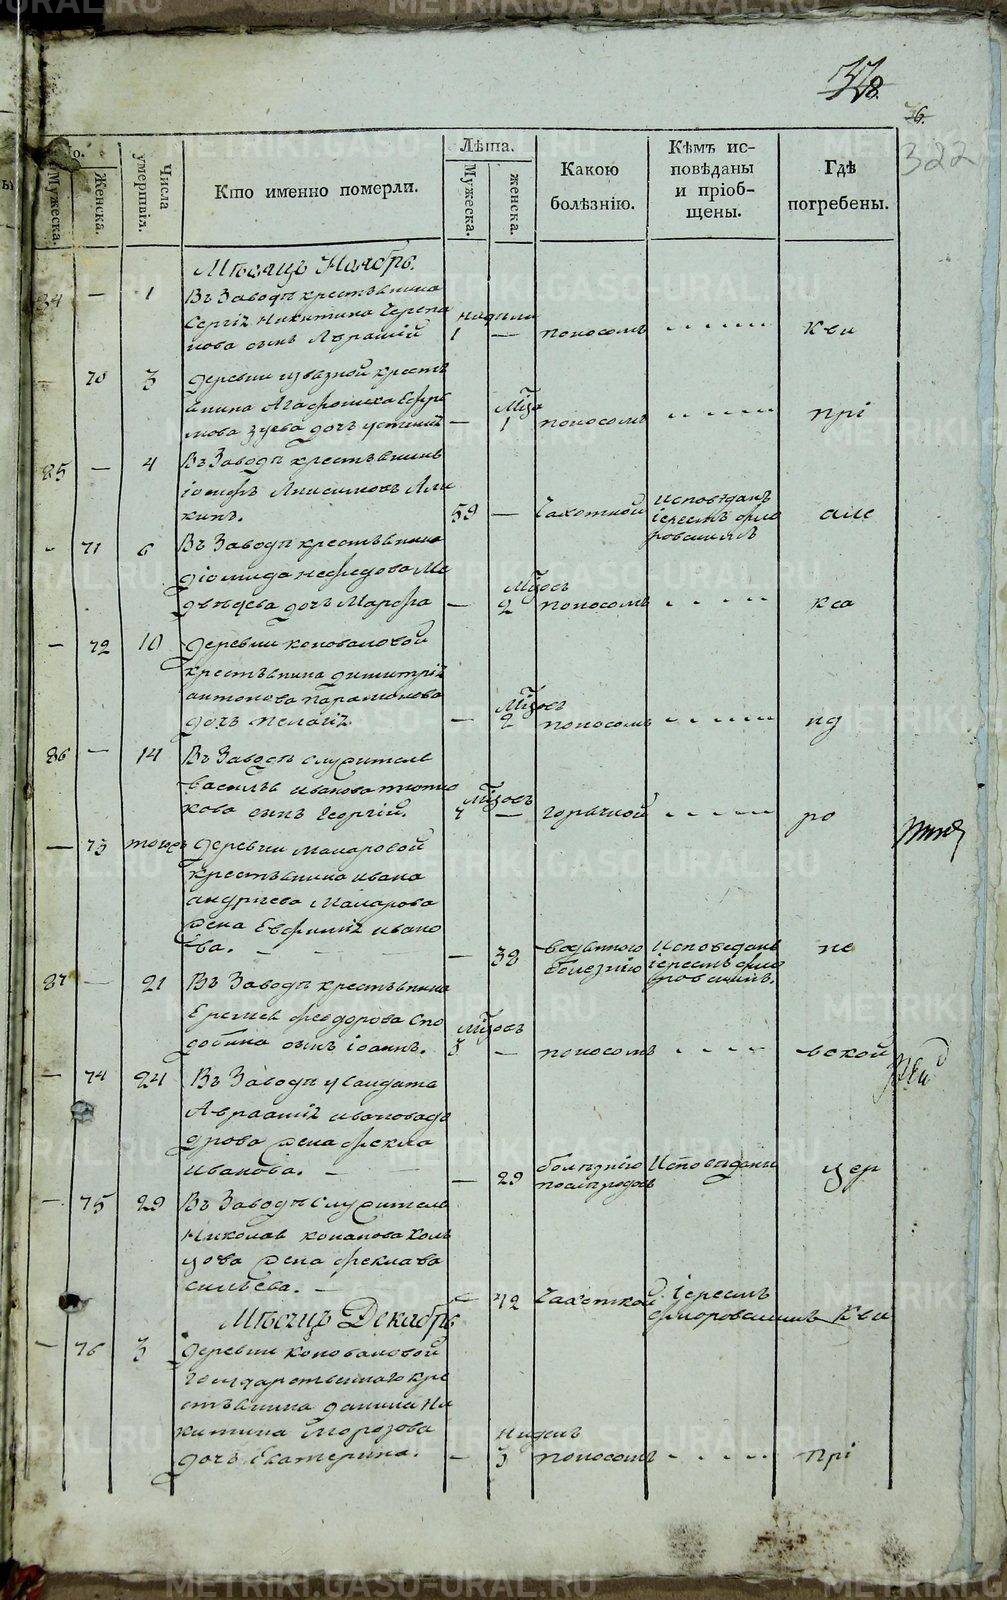 328.
36.
322
№.
Мужеска.
Женска.
Числа умертвія.
Кто именно померли.
Лѣта.
Мужеска.
женска.
Какою болѣзнію.
Кѣмъ исповѣданы и пріобщены.
Гдѣ погребены.
Мѣсяцъ Ноябрь.
84 — 1 Въ Заводѣ крестьянина
Сергія Никитина Черепа
нова сынъ недѣли
1 — поносомъ Кви
70 3 деревни крестья
нина Ефре
мова Зуева дочь — Мѣсяца 1 поносомъ прі
85 — 4 Въ Заводѣ крестьянинъ
Іосифъ Анисимовъ Али
кинъ. 59 — Чахоткой Исповѣданъ
Іереемъ Фло
ровскимъ аме
- 71 6 Въ Заводѣ крестьянина
Діомида Нефедова Ме
двѣдева дочь Марфа — Мѣсяцовъ 2 поносомъ кса
— 72 10 деревни Коноваловой
крестьянина Димитрія
Антонова Парамонова
дочь Пелагія — Мѣсяцовъ 2 поносомъ нд
86 — 14 Въ Заводѣ служителя
Василья Иванова Плотни
кова сынъ Георгій. Мѣсяцовъ — горячкой ро
— 73 тогожъ деревни Макаровой
крестьянина Ивана
Андреева Макарова
жена Евфимія Ивано
ва. — 38 болезнію Исповедана
Іереемъ Фло
ровскимъ. не
87 — 21 Въ Заводѣ крестьянина
Еремея Феодорова Спо
добина сынъ Іоаннъ. Мѣсяцовъ 3 — поносомъ вской
— 74 24 Въ Заводѣ у Солдата
Авраамія Иванова
дрова жена Фекла
Иванова. — 29 болезнію
послѣродовъ Исповѣдана цер
— 75 29 Въ Заводѣ Служителя
Николая Конанова Коль
цова жена Фекла Ва
сильева. — 42 Чахоткой Іереемъ
Флоровскимъ Кви
Мѣсяцъ Декабрь
— 76 3 деревни Коноваловой
Государственнаго кре
стьянина Данила Ни
китина Морозова
дочь Екатерина. — недель 3 поносомъ прі
METRIKI.GASO-URAL.RU